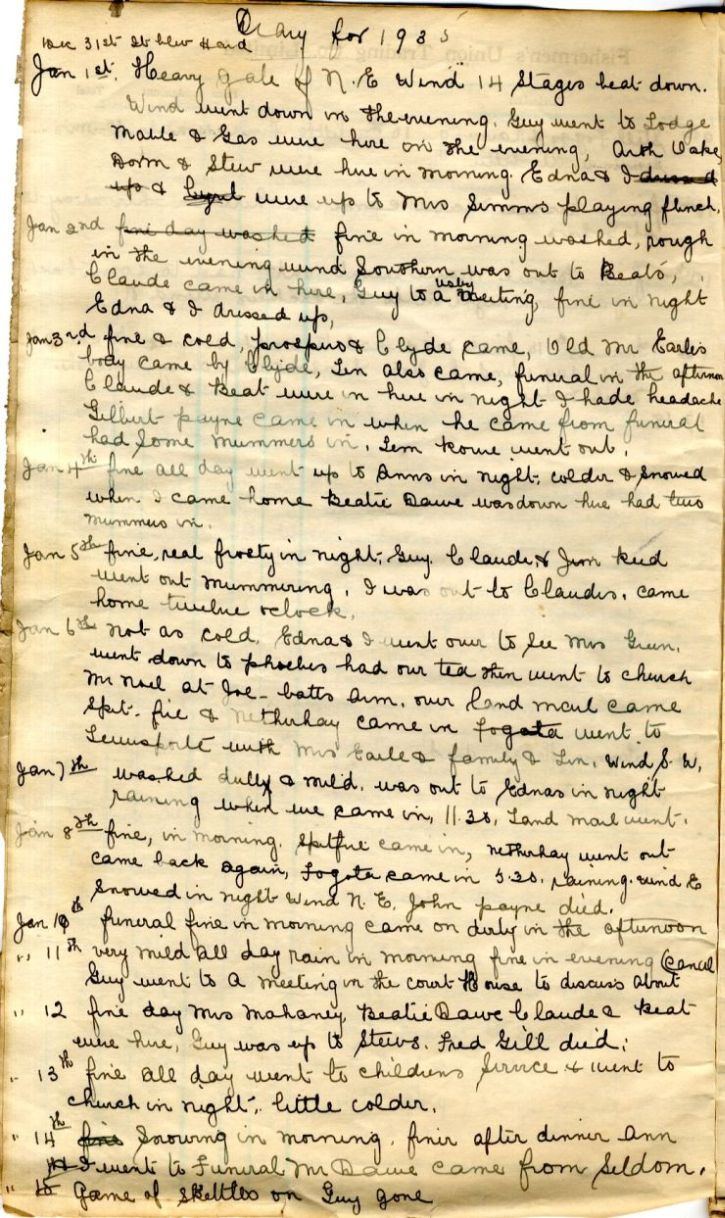 Diary for 1935
Dec 31st It blew Hard
Jan 1st. Heavy gale of N. E Wind 14 Stages beat down.
Wind went down in the evening. Guy went to Lodge
Mable & Gas were here in the evening, Arth Oake,
Dorm & Stew were here in morning. Edna & I dressed
up & were up to Mrs Simms playing flinch.
Jan 2nd fine day washed fine in morning washed, rough
in the evening wind Southern was out to Beats,
Claude came in here, Guy to a Meeting, fine in night
Edna & I dressed up,
Jan 3rd fine & cold, prosperus & Clyde came, Old Mr Earles
body came by Clyde, Lin also came, funeral in the afternoon
Claude & Beat were in here in night I hade headache
Gilbert payne came in when he came from funeral
had some mummers in, Lem went out.
Jan 4th fine all day went up to Anns in night, colder & snowed
when I came home Beatie Dawe was down here had two
mummers in.
Jan 5th fine, real frosty in night, Guy, Claude & Jim
went out mummering, I was out to Claudes, came
home twelve oclock.
Jan 6th Not as cold, Edna & I went over to see Mrs Green,
went down to phoebies had our tea then went to church
Mr Noel at Joe-batts arm, our land mail came
Spit-fire & Netherhay came in Fogota went to
Lewisporte with Mrs Earle & family & Lin, Wind S. W,
Jan 7th washed dull & mild, was out to Ednas in night
raining when we came in, 11.30, Land mail went.
Jan 8th fine, in morning, Spitfire came in, Netherhay went out
came back again, Fogota came in 5.30. raining. wind E
Snowed in night Wind N. E, John payne died.
Jan 10th funeral fine in morning came on dirty in the afternoon
" 11th very mild all day rain in morning fine in evening (Cancel
Guy went to a meeting in the court House to discuss about
" 12 fine day Mrs Mahaney, Beatie Dawe Claude & Beat
were here, Guy was up to Stews. Fred Gill died;
" 13th fine all day went to childrens Service & went to
church in night, little colder.
" 14th fine Snowing in morning, finer after dinner Ann
& I went to Funeral Mr Dawe came from Seldom,
" 15 Game of Skettles on Guy gone